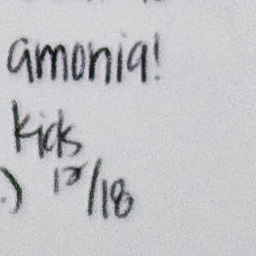 amonia!
Kids
.) 12/18